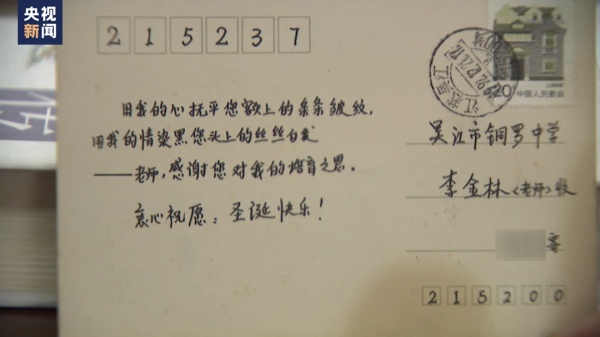 央视
新闻
215237
20 中国人民邮政
用我的心抚平您额上的条条皱纹,
用我的情染黑您头上的丝丝白发
——老师,感谢您对我的培育之恩。
衷心祝愿:圣诞快乐!
吴江市铜罗中学
李金林(老师)收
寄
215200